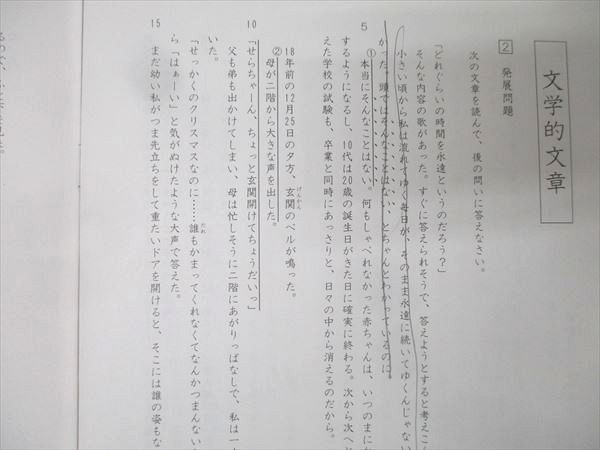 文学的文章
2 発展問題
次の文章を読んで、後の問いに答えなさい。
「どれぐらいの時間を永遠というのだろう?」
そんな内容の歌があった。すぐに答えられそうで、答えようとすると考えこ
小さい頃から私は流れてゆく毎日が、そのまま永遠に続いてゆくんじゃない
かった。頭ではそんなことはない、とちゃんとわかっているのに。
5 ①本当にそんなことはない。何もしゃべれなかった赤ちゃんは、いつのまに
するようになるし、10代は20歳の誕生日がきた日に確実に終わる。次から次へ
えた学校の試験も、卒業と同時にあっさりと、日々の中から消えるのだから。
18年前の12月25日の夕方、玄関のベルが鳴った。
げんかん
②母が二階から大きな声を出した。
10 「せらちゃーん、ちょっと玄関開けてちょうだいっ」
父も弟も出かけてしまい、母は忙しそうに二階にあがりっぱなしで、私は一
いた。
「せっかくのクリスマスなのに……誰もかまってくれなくてなんかつまんない
だれ
ら「はぁーい」と気がぬけたような大声で答えた。
15 まだ幼い私がつま先立ちをして重たいドアを開けると、そこには誰の姿もな